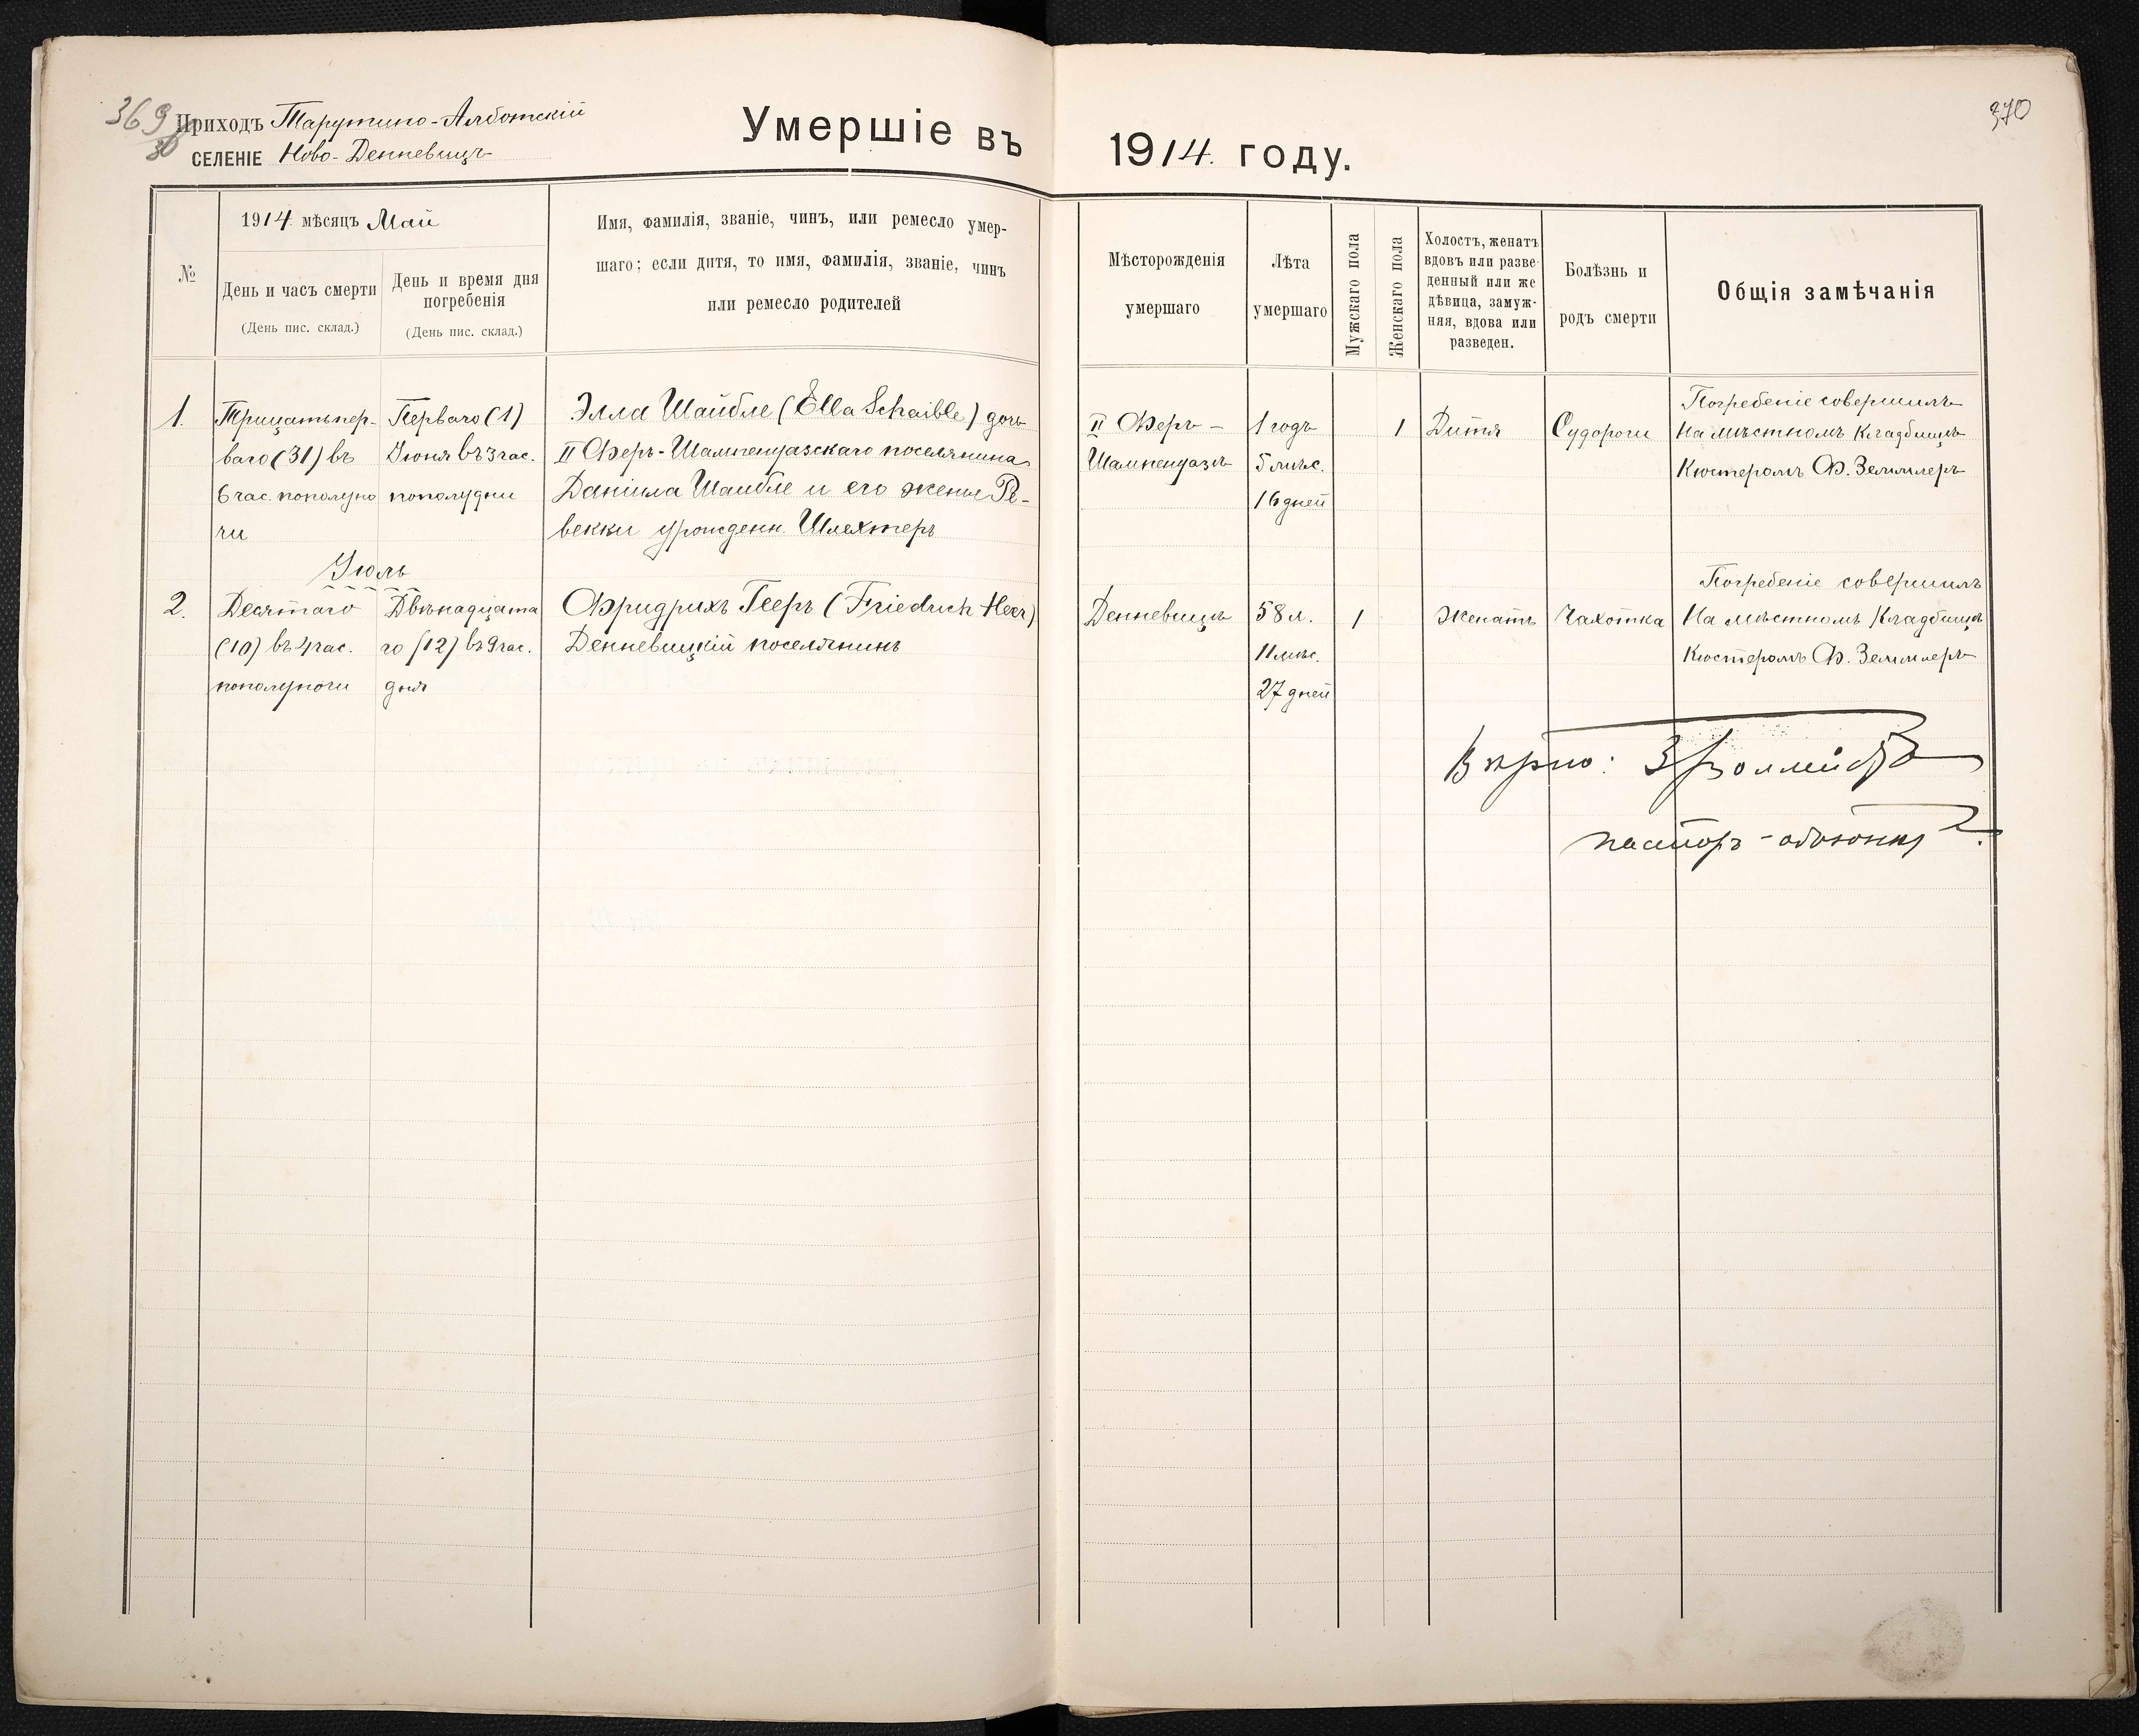 369
370
30
Приходъ Тарутино-Алботскій
СЕЛЕНІЕ Ново-Денневицъ
Умершіе въ 1914. году.
№
1914 мѣсяцъ Май
День и часъ смерти
(День пис. склад.)
День и время дня
погребенія
(День пис. склад.)
Имя, фамилія, званіе, чинъ, или ремесло умер-
шаго; если дитя, то имя, фамилія, званіе, чинъ
или ремесло родителей
Мѣсторожденія
умершаго
Лѣта
умершаго
Мужскаго пола
Женскаго пола
Холостъ, женатъ
вдовъ или разве-
денный или же
дѣвица, замуж-
няя, вдова или
разведен.
Болѣзнь и
родъ смерти
Общія замѣчанія
1.
Трицатьпер-
ваго (31) въ
6 час. пополуно
чи
Перваго (1)
Іюня въ 3 час.
пополудни
Элла Шайбле (Ella Schaible) дочь
II Феръ-Шампенуазскаго поселянина
Даніила Шаибле и его жены Ре-
векки урожденн. Шлехтеръ
II Феръ-
Шампенуазъ
1 годъ
5 мѣс.
16 дней
1
Дитя
Судороги
Погребеніе совершилъ
На мѣстномъ Кладбищѣ
Кюстеромъ Ф. Земмлеръ
Іюль
2.
Десятаго
(10) въ 4 час.
пополуночи
Двѣнадцата
го (12) въ 9 час.
дня
Фридрихъ Гееръ (Friedrich Heer)
Денневицкій поселянинъ
Денневицъ
58 л.
11 мѣс.
27 дней
1
Женатъ
Чахотка
Погребеніе совершилъ
На мѣстномъ Кладбищѣ
Кюстеромъ Ф. Земмлеръ
Вѣрно:
пасторъ-адъюнктъ.